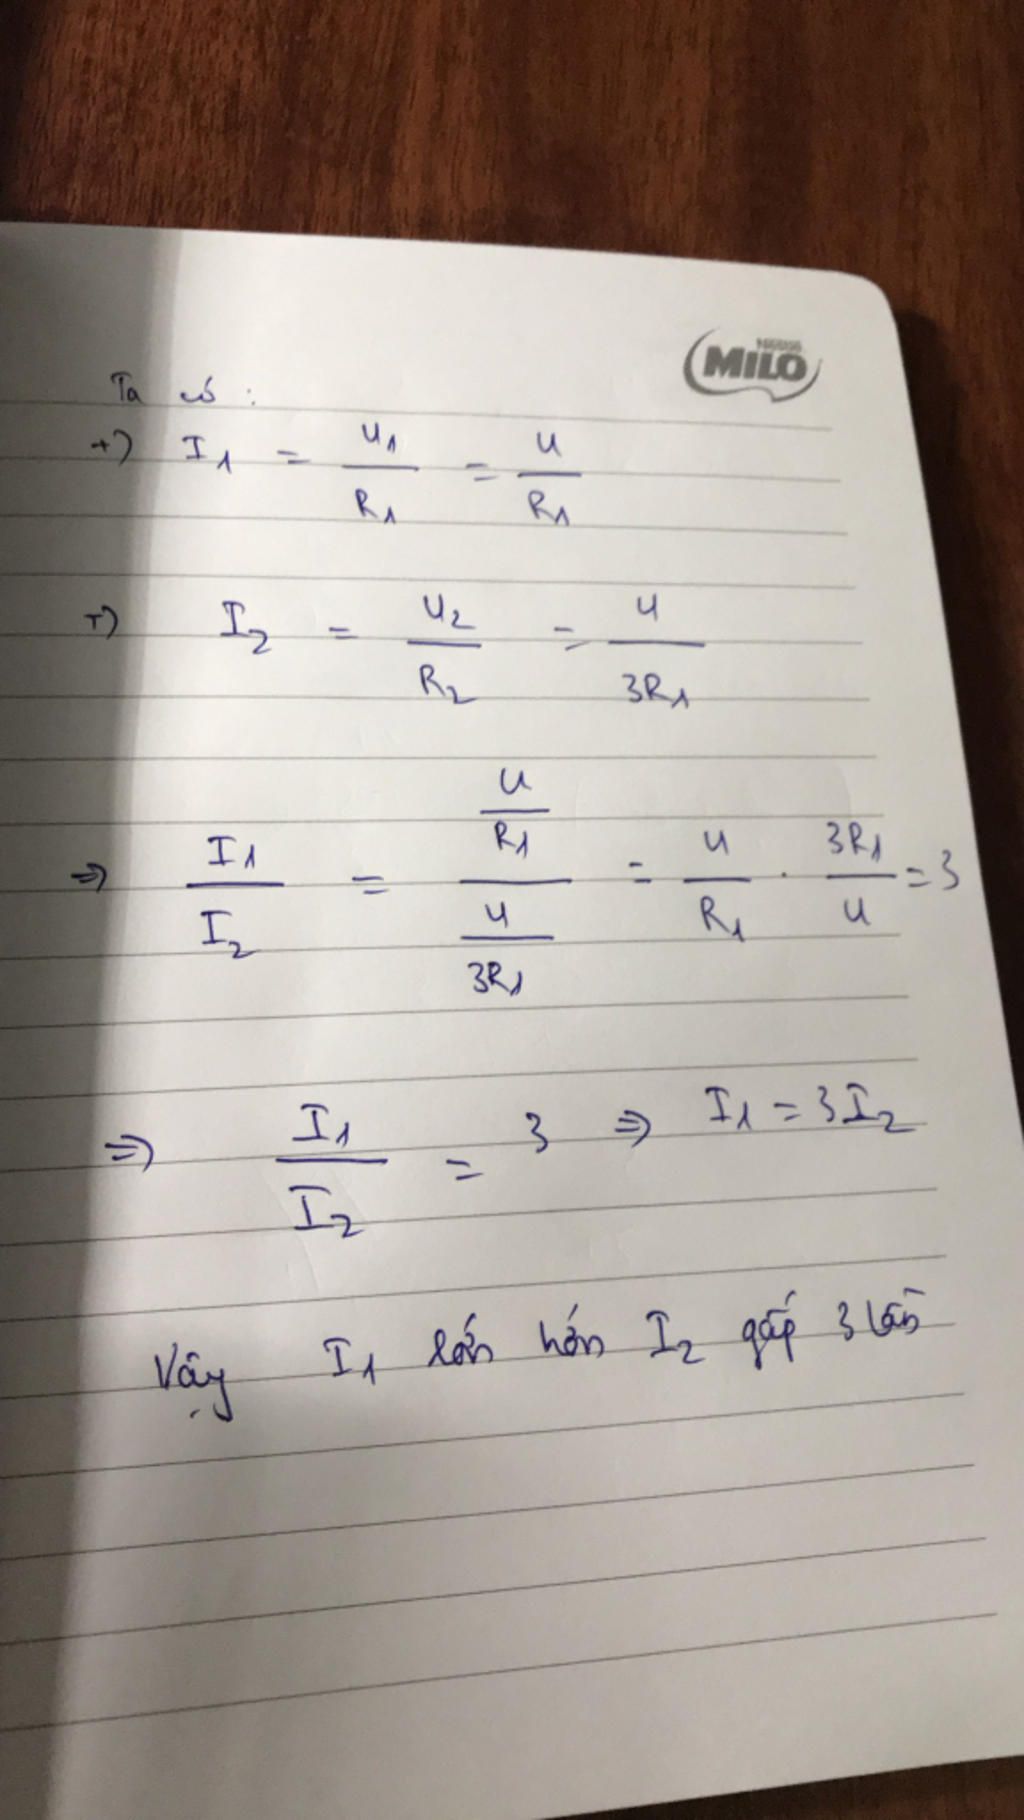 Nestlé
MILO
Ta có :
+) I₁ = U₁/R₁ = U/R₁
+) I₂ = U₂/R₂ = U/3R₁
=> I₁/I₂ = (U/R₁)/(U/3R₁) = U/R₁ · 3R₁/U = 3
=> I₁/I₂ = 3 => I₁ = 3I₂
Vậy I₁ lớn hơn I₂ gấp 3 lần